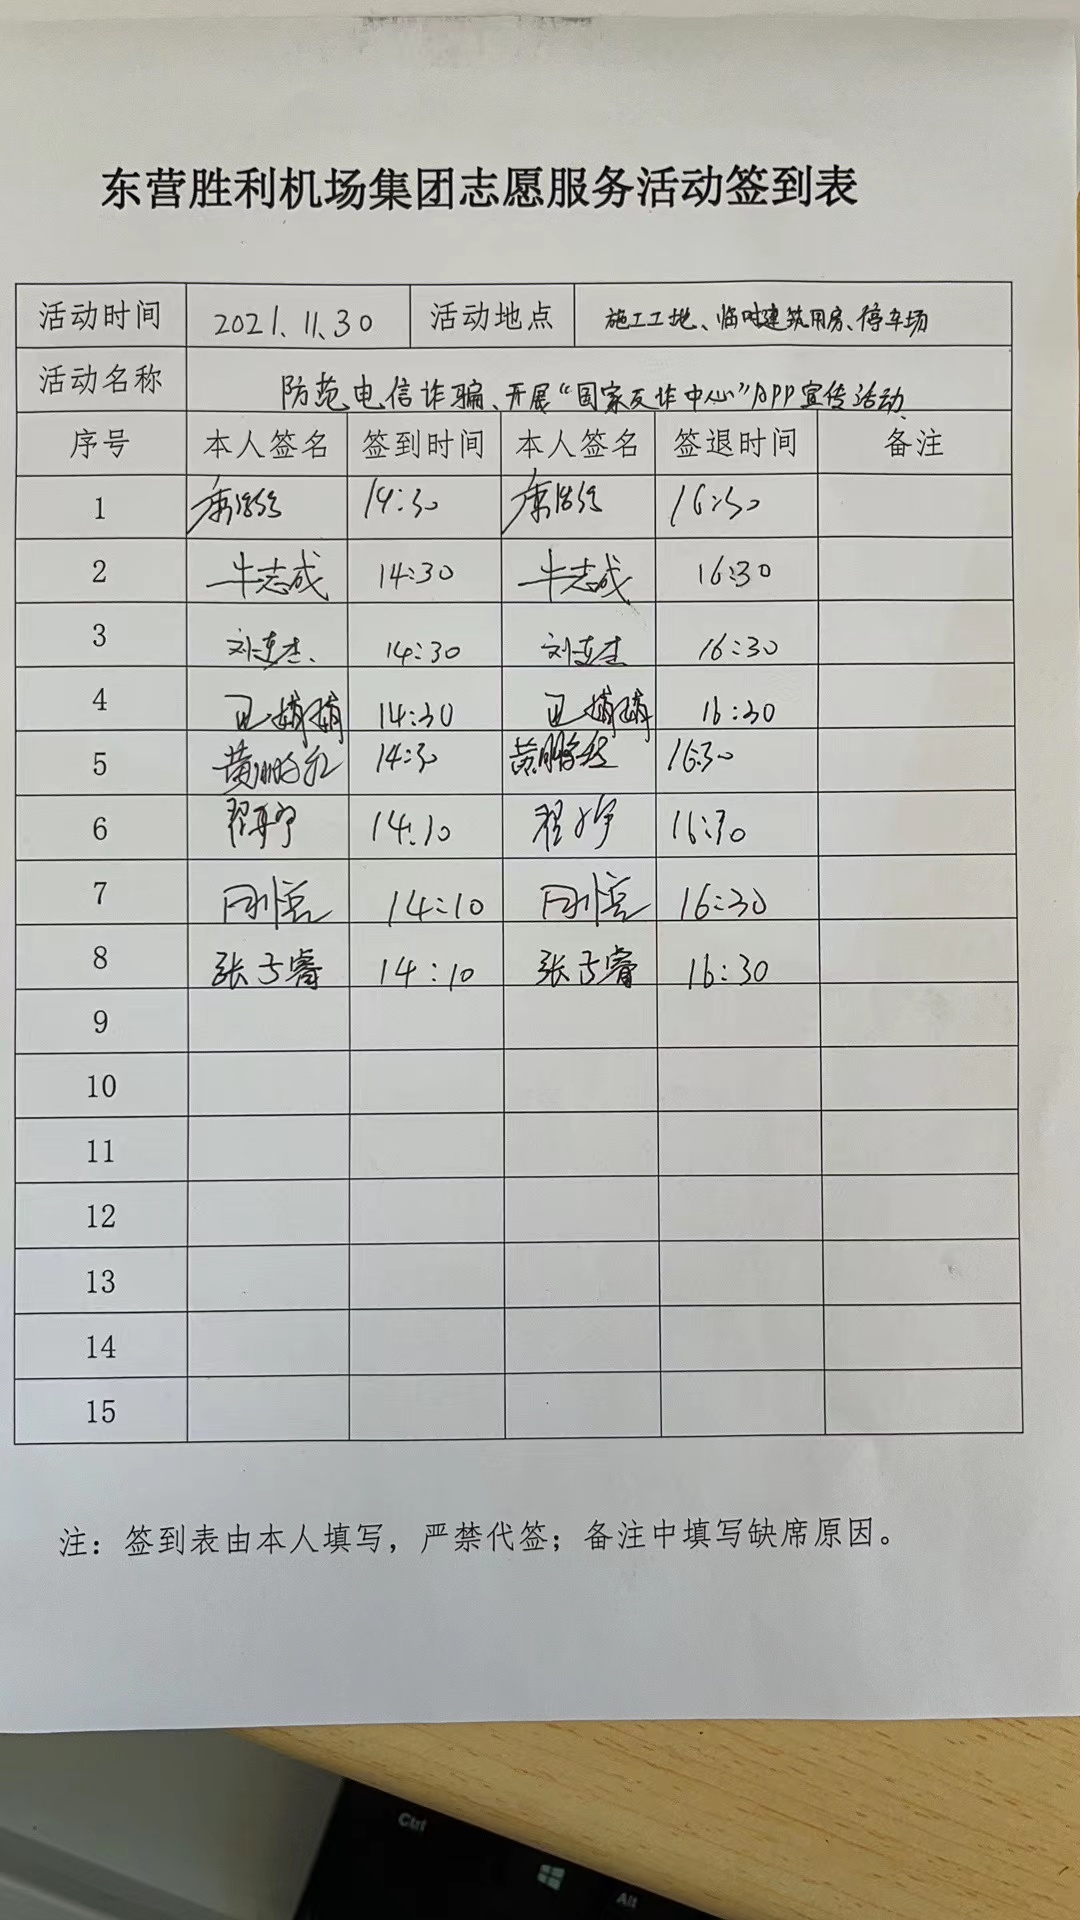 东营胜利机场集团志愿服务活动签到表
活动时间 2021.11.30 活动地点 施工工地、临时建筑用房、停车场
活动名称 防范电信诈骗、开展“国家反诈中心”APP宣传活动
序号 本人签名 签到时间 本人签名 签退时间 备注
1 14:30 16:30
2 牛志成 14:30 牛志成 16:30
3 刘连杰 14:30 刘连杰 16:30
4 14:30 16:30
5 黄鹏 14:30 黄鹏 16:30
6 翟 14:10 翟 16:30
7 14:10 16:30
8 张 睿 14:10 张 睿 16:30
9
10
11
12
13
14
15
注：签到表由本人填写，严禁代签；备注中填写缺席原因。
Ctrl
Alt